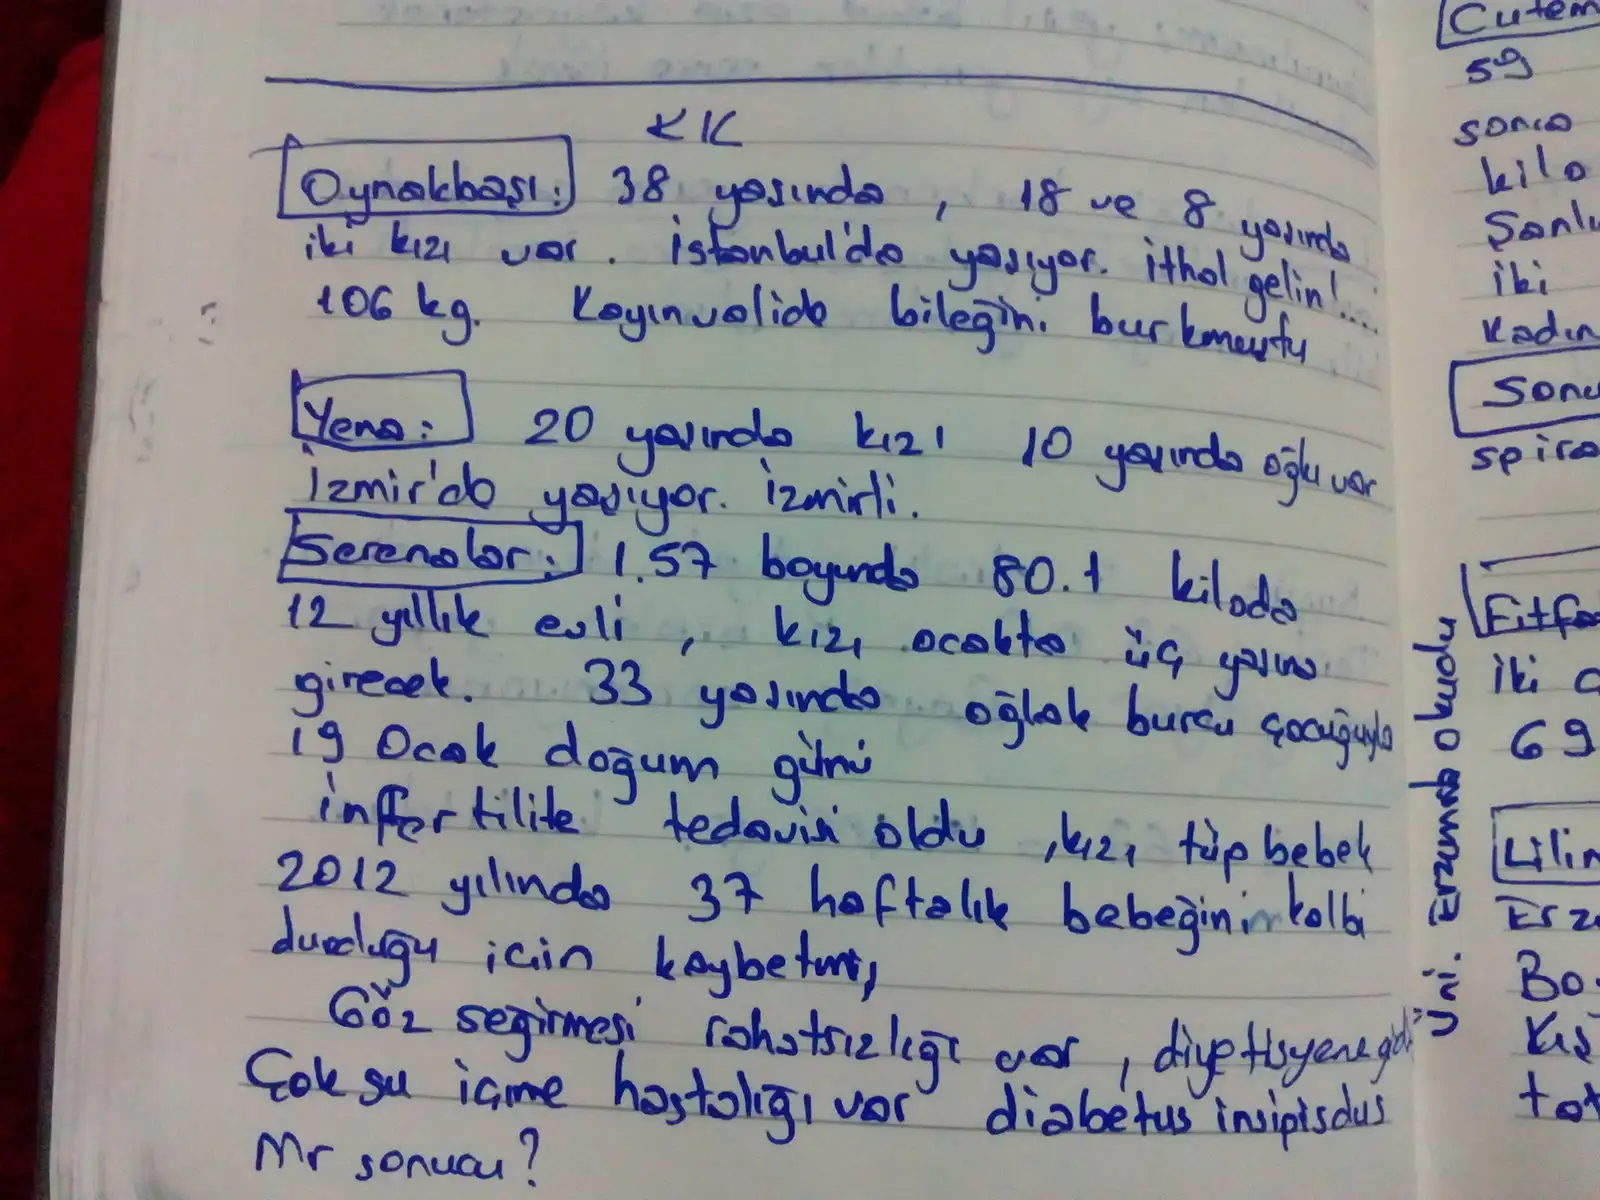 KK
Oynakbaşı: 38 yaşında, 18 ve 8 yaşında
iki kızı var. İstanbul'da yaşıyor. İthal gelin!....
106 kg. Kayınvalide bileğini burkmuştu
Yena: 20 yaşında kızı 10 yaşında oğlu var
İzmir'de yaşıyor. İzmirli.
Serenalar: 1.57 boyunda 80.1 kiloda
12 yıllık evli, kızı ocakta üç yaşına
girecek. 33 yaşında oğlak burcu çocuğuyla
19 Ocak doğum günü
inffertilite tedavisi oldu, kızı tüp bebek
2012 yılında 37 haftalık bebeğinin kalbi
durduğu için kaybetmiş
Göz seğirmesi rahatsızlığı var, diyetisyene
Çok su içme hastalığı var diabetus insipisdus
Mr sonucu?
Üni. Erzurumda okudu
59
sonra
kilo
iki
Kadın
iki
69